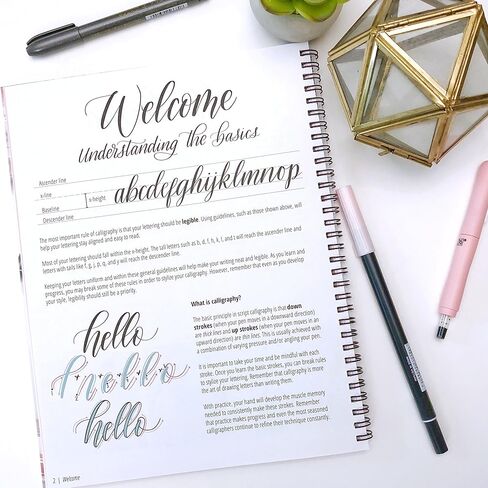 Welcome
Understanding the basics
Ascender line
x-line
Baseline
Descender line
x-height
abcdefghijklmnop
The most important rule of calligraphy is that your lettering should be legible. Using guidelines, such as those shown above, will
help your lettering stay aligned and easy to read.
Most of your lettering should fall within the x-height. The tall letters such as b, d, f, h, k, l, and t will reach the ascender line and
letters with tails like f, g, j, p, q, and y will reach the descender line.
Keeping your letters uniform and within these general guidelines will help make your writing neat and legible. As you learn and
progress, you may break some of these rules in order to stylize your calligraphy. However, remember that even as you develop
your style, legibility should still be a priority.
hello
hello
hello
What is calligraphy?
The basic principle in script calligraphy is that down
strokes (when your pen moves in a downward direction)
are thick lines and up strokes (when your pen moves in an
upward direction) are thin lines. This is usually achieved with
a combination of varying pressure and/or angling your pen.
It is important to take your time and be mindful with each
stroke. Once you learn the basic strokes, you can break rules
to stylize your lettering. Remember that calligraphy is more
the art of drawing letters than writing them.
With practice, your hand will develop the muscle memory
needed to consistently make these strokes. Remember
that practice makes progress and even the most seasoned
calligraphers continue to refine their technique constantly.
2 | Welcome